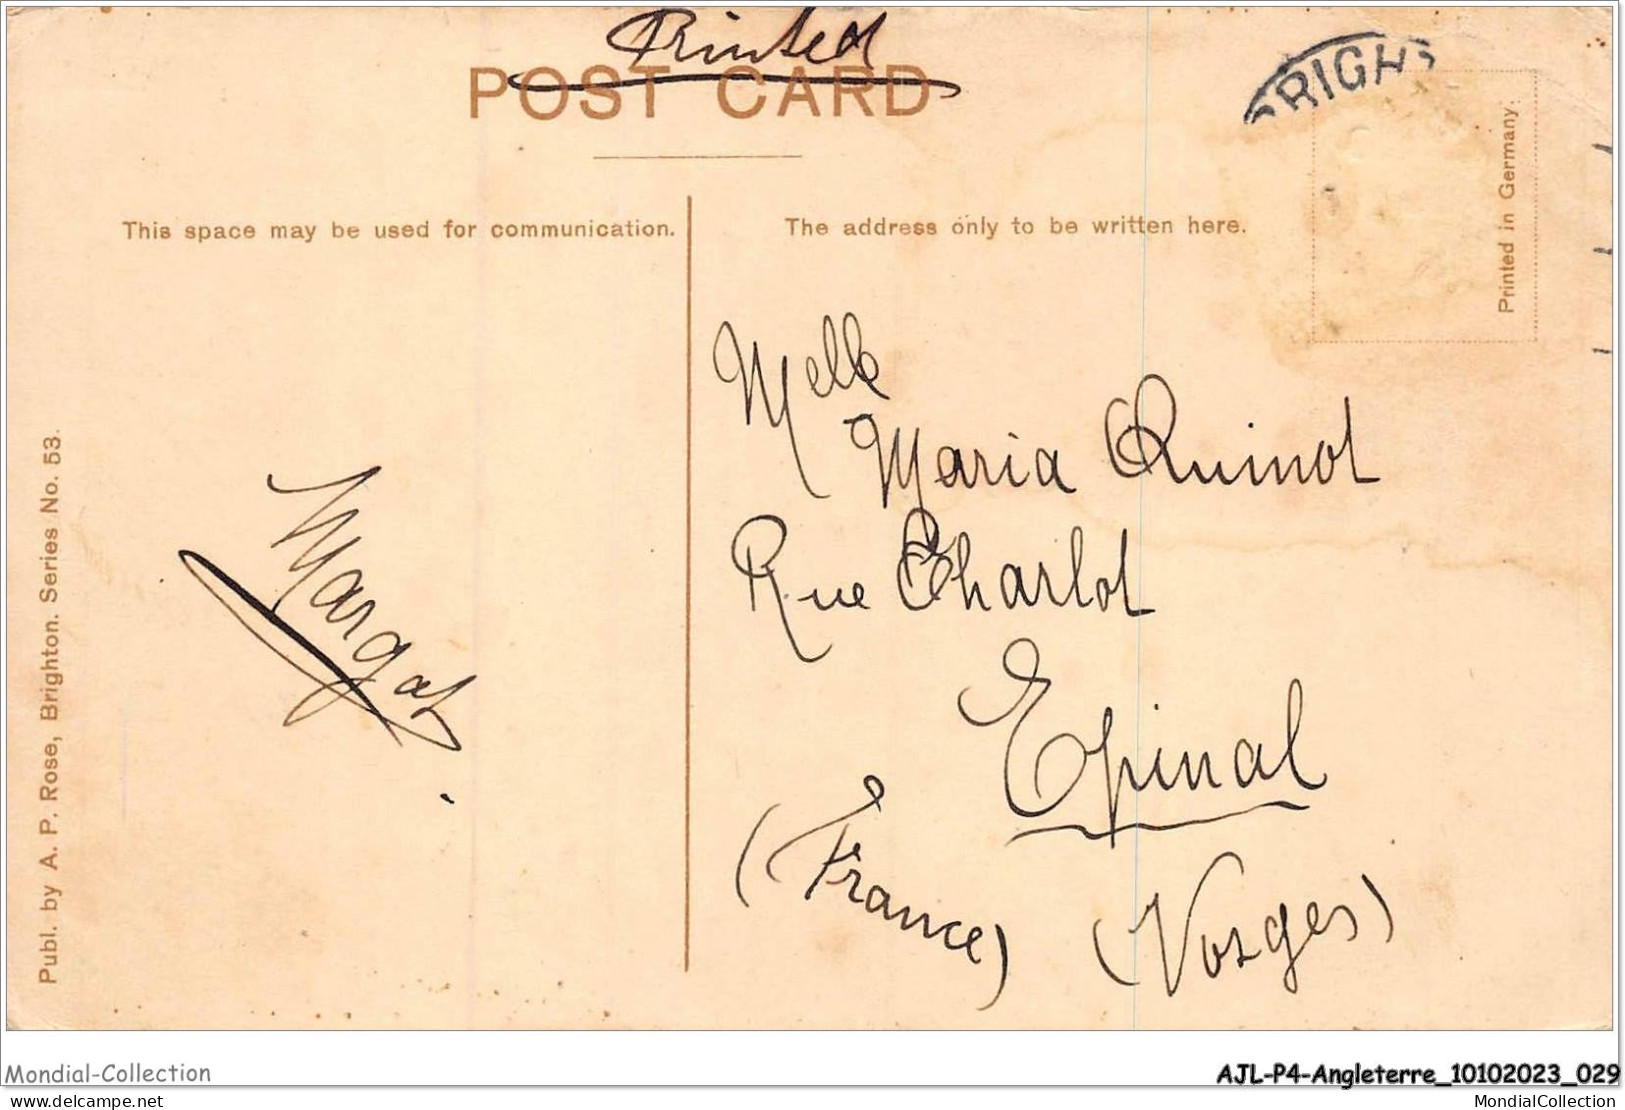 Printed
POST CARD
BRIGH
This space may be used for communication.
The address only to be written here.
Printed in Germany.
Publ. by A. P. Rose, Brighton. Series No. 53.
Margot.
Melle
Maria Quinot
Rue Charlot
Epinal
(France) (Vosges)
Mondial-Collection
AJL-P4-Angleterre_10102023_029
delcampe.net
MondialCollection